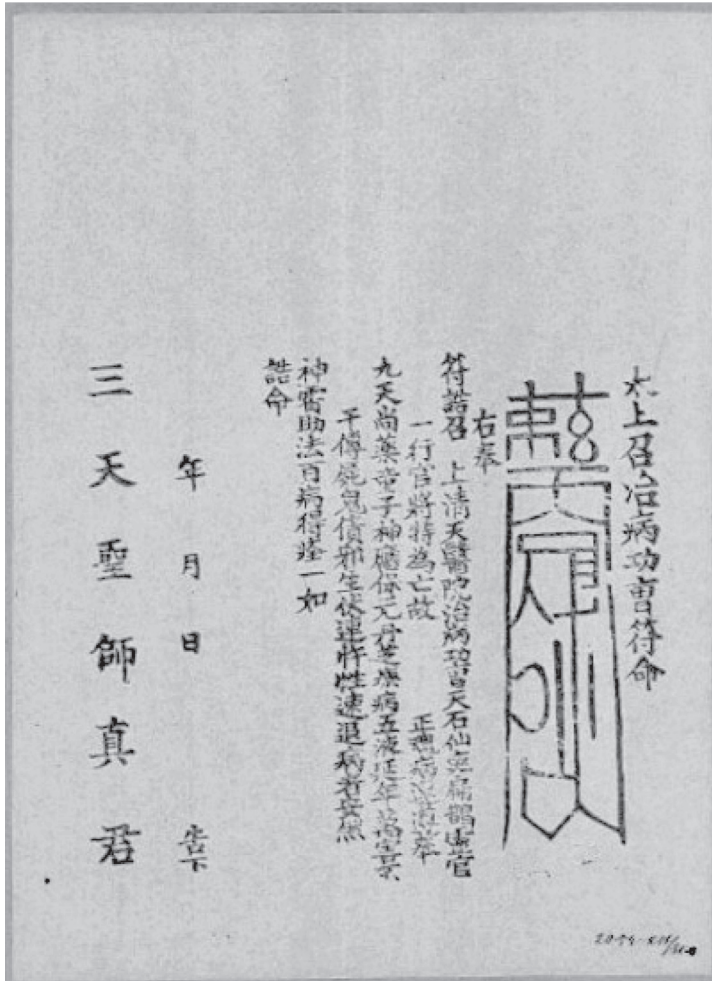 太上召治病功曹符命
右奉
符誥召 上清天醫院治病功曹天石仙與扁鵲靈官
一行官將特為亡故 正魂病
九天尚藥帝子神應保元丹芝療病五液延年萬害不
干傳屍鬼債邪生伏連忤性速退病者安然
神雷助法百病得痊一如
誥命
年 月 日 告下
三天聖師真君